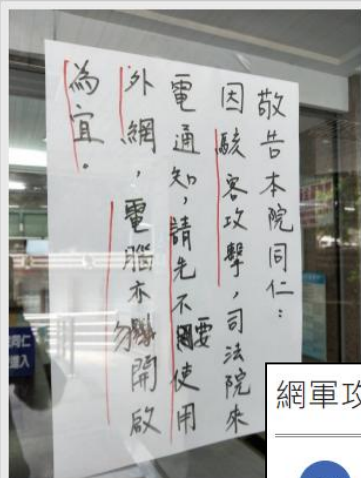 敬告本院同仁：
因駭客攻擊，司法院來
電通知，請先不要使用
外網，電腦亦勿開啟
為宜。
網軍攻